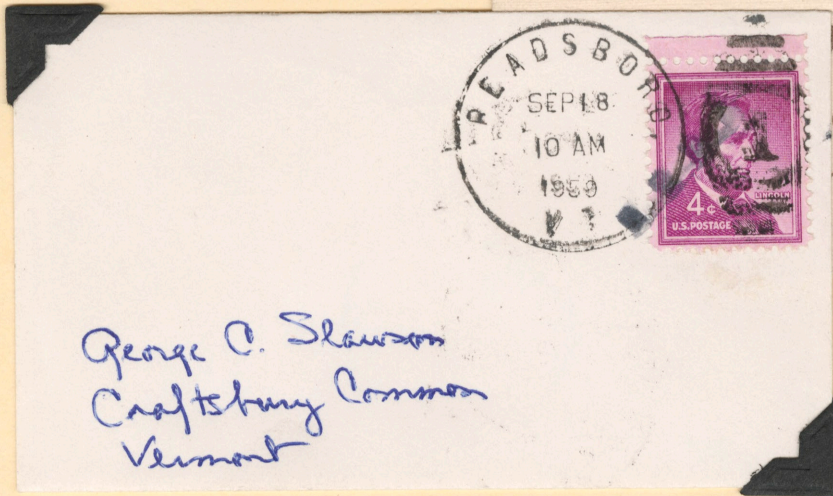 READSBORO,
SEP 18
10 AM
1959
VT
LINCOLN
4¢
U.S. POSTAGE
1
George C. Slawson
Craftsbury Common
Vermont